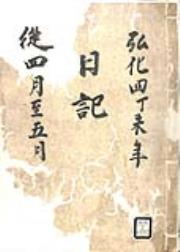 弘化四丁未年
日記
従四月至五月